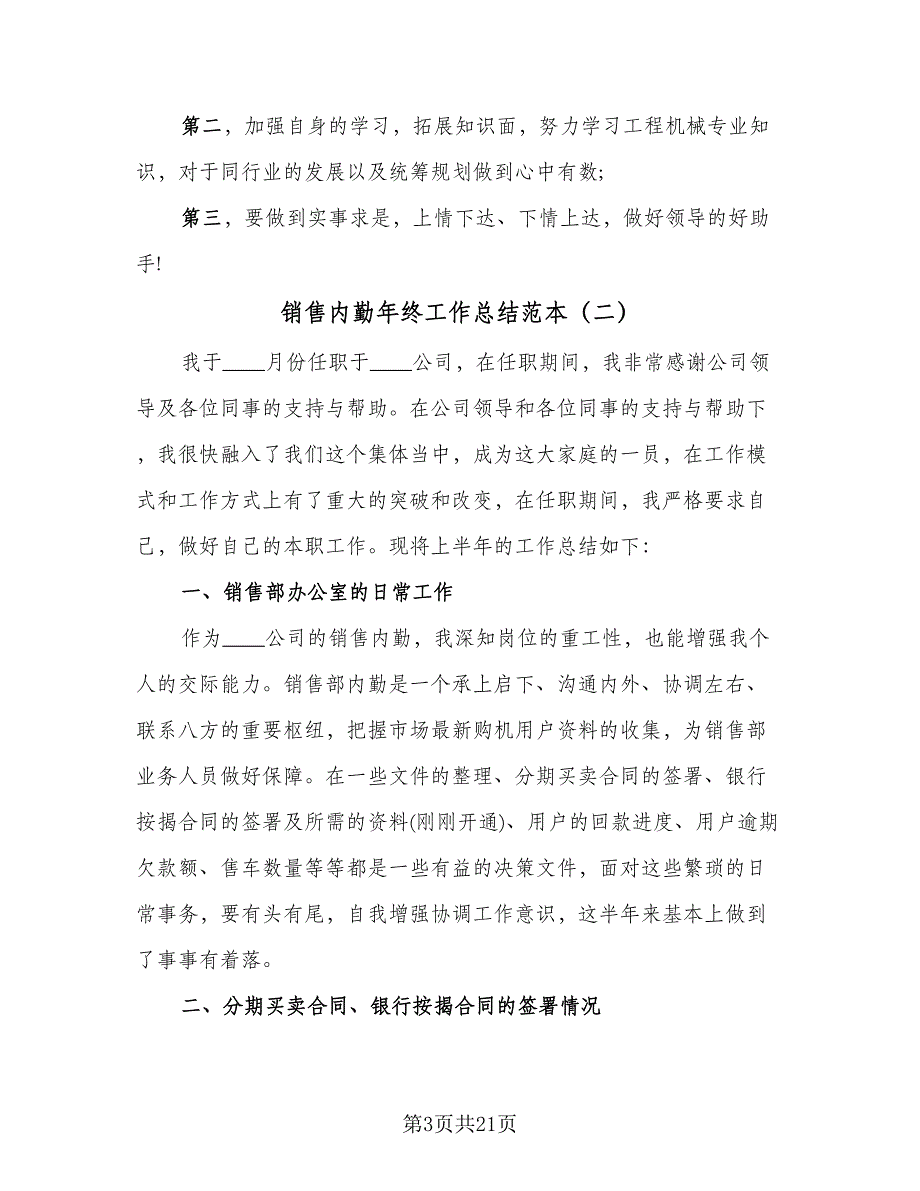 第二，加强自身的学习，拓展知识面，努力学习工程机械专业知
识，对于同行业的发展以及统筹规划做到心中有数;
第三，要做到实事求是，上情下达、下情上达，做好领导的好助
手!
销售内勤年终工作总结范本（二）
我于____月份任职于____公司，在任职期间，我非常感谢公司领
导及各位同事的支持与帮助。在公司领导和各位同事的支持与帮助下
，我很快融入了我们这个集体当中，成为这大家庭的一员，在工作模
式和工作方式上有了重大的突破和改变，在任职期间，我严格要求自
己，做好自己的本职工作。现将上半年的工作总结如下：
一、销售部办公室的日常工作
作为____公司的销售内勤，我深知岗位的重工性，也能增强我个
人的交际能力。销售部内勤是一个承上启下、沟通内外、协调左右、
联系八方的重要枢纽，把握市场最新购机用户资料的收集，为销售部
业务人员做好保障。在一些文件的整理、分期买卖合同的签署、银行
按揭合同的签署及所需的资料(刚刚开通)、用户的回款进度、用户逾期
欠款额、售车数量等等都是一些有益的决策文件，面对这些繁琐的日
常事务，要有头有尾，自我增强协调工作意识，这半年来基本上做到
了事事有着落。
二、分期买卖合同、银行按揭合同的签署情况
第3页共21页